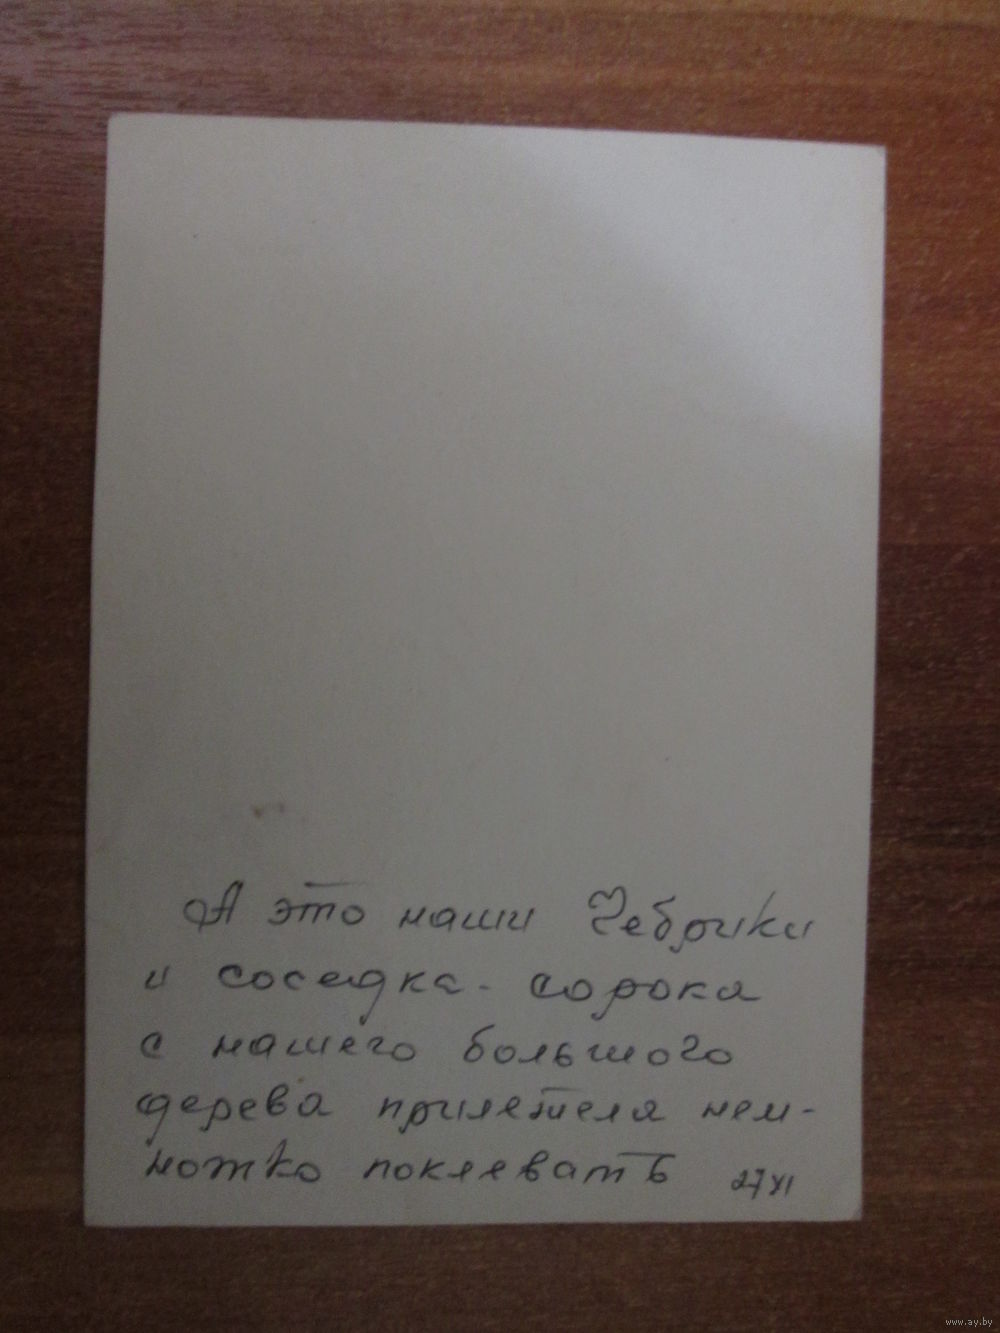 А это наши Чебрики
и соседка - сорока
с нашего большого
дерева прилетела нем-
ножко поклевать 27 XI
www.ay.by